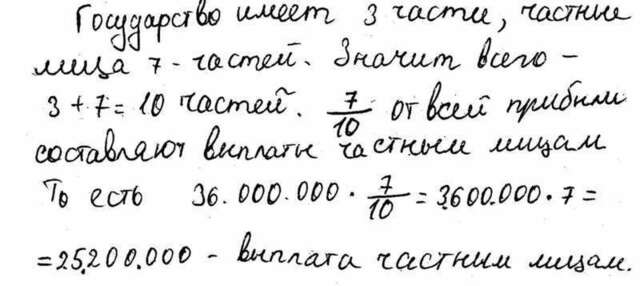 Государство имеет 3 части, частные
лица 7 - частей. Значит всего -
3 + 7 = 10 частей. 7/10 от всей прибыли
составляют выплаты частным лицам
То есть 36.000.000 · 7/10 = 3.600.000 · 7 =
= 25.200.000 - выплата частным лицам.